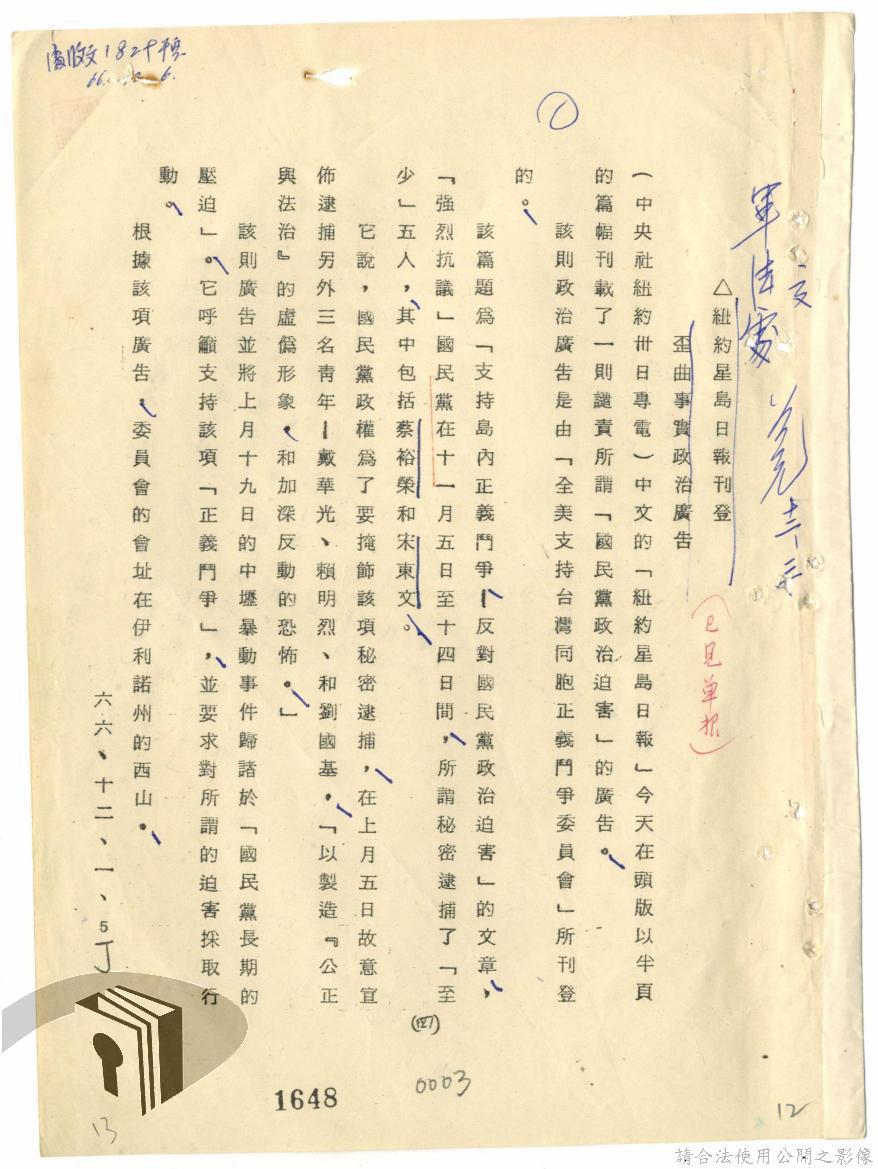 ①
文
軍法處
十二、三
(已見单報)
△紐約星島日報刊登
歪曲事實政治廣告
(中央社紐約卅日專電)中文的「紐約星島日報」今天在頭版以半頁
的篇幅刊載了一則譴責所謂「國民黨政治迫害」的廣告。
該則政治廣告是由「全美支持台灣同胞正義鬥爭委員會」所刊登
的。
該篇題爲「支持島內正義鬥爭—反對國民黨政治迫害」的文章,
「强烈抗議」國民黨在十一月五日至十四日間,所謂秘密逮捕了「至
少」五人,其中包括蔡裕榮和宋東文。
它說,國民黨政權爲了要掩飾該項秘密逮捕,在上月五日故意宣
佈逮捕另外三名青年—戴華光、賴明烈、和劉國基,「以製造『公正
與法治』的虛僞形象,和加深反動的恐怖。」
該則廣告並將上月十九日的中壢暴動事件歸諸於「國民黨長期的
壓迫」。它呼籲支持該項「正義鬥爭」,並要求對所謂的迫害採取行
動。
根據該項廣告,委員會的會址在伊利諾州的西山。
六六、十二、一、5J
(127)
0003
1648
12
13
請合法使用公開之影像